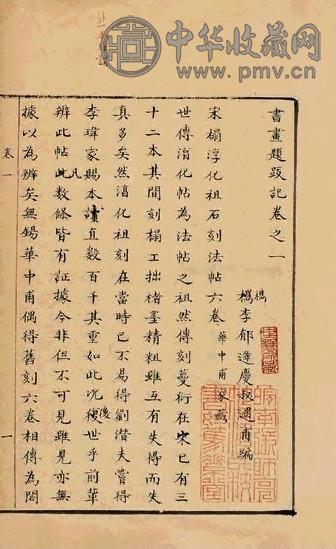 中华收藏网
www.pmv.cn
書畫題跋記卷之一
檇
檇李郁逢慶叔遇甫編
宋榻淳化祖石刻法帖六卷 華中甫家藏
世傳淳化帖為法帖之祖然刻蔓衍在宋已有三
十二本其間刻榻工拙楮墨精粗雖互有失得而失
真多矣然淳化祖刻在當時已不易得劉潛夫嘗得
李瑋家賜本讀直數百千其重如此况後世乎前輩
辨此帖凡此數條皆有証據今非但不可見雖見亦無
據以為辨矣無錫華中甫偶得舊刻六卷相傳為閣
卷一
一